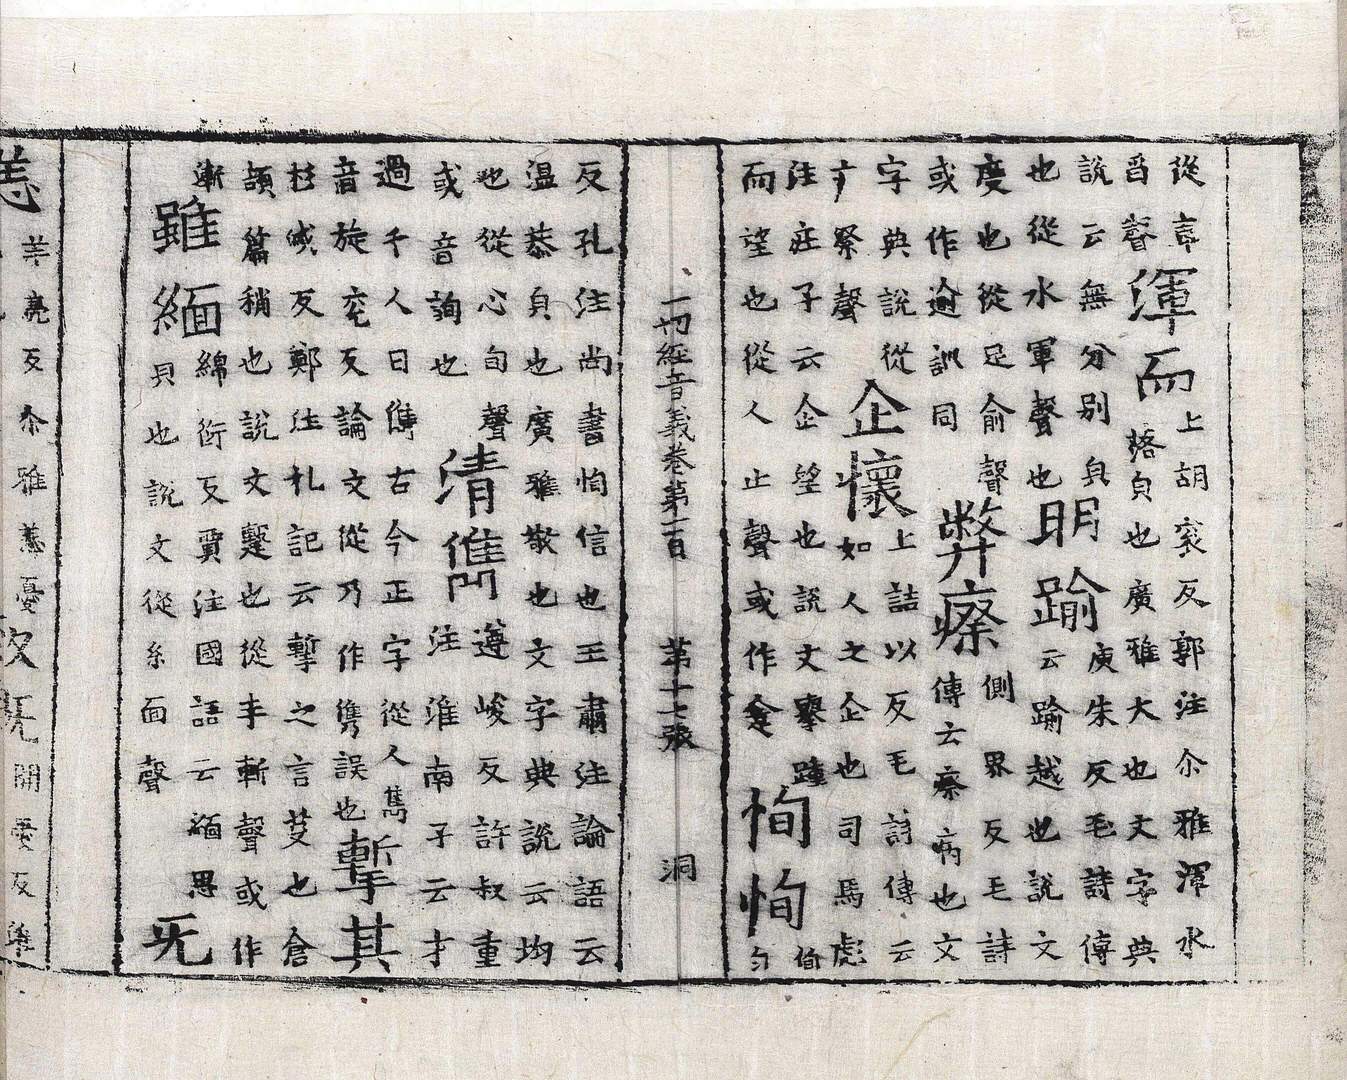 從言
爲聲渾而上胡衮反郭注尒雅渾水
落皃也廣雅大也文字典
說云無分別皃明踰庚朱反毛詩傳
也從水軍聲也云踰越也說文
度也從足俞聲弊瘵側界反毛詩
或作逾訓同傳云瘵病也文
字典說從企懷上詰以反毛詩傳云
疒祭聲如人之企也司馬彪
注莊子云企望也說文擧踵
而望也從人止聲或作恂恂
一切經音義卷第一百 第十七張 洞
反孔注尚書恂信也王肅注論語云
温恭皃也廣雅敬也文字典說云均
也從心旬聲清儁遵峻反許叔重
或音詢也注淮南子云才
過千人曰儁古今正字從人雋
音旋兖反論文從乃作㑺誤也塹其
杜減反鄭注礼記云塹之言芟也倉
頡篇稍也說文蹔也從手斬聲或作
漸雖緬綿衍反賈注國語云緬思
皃也說文從糸面聲旡
恙羊亮反尒雅恙憂
次旡開愛反